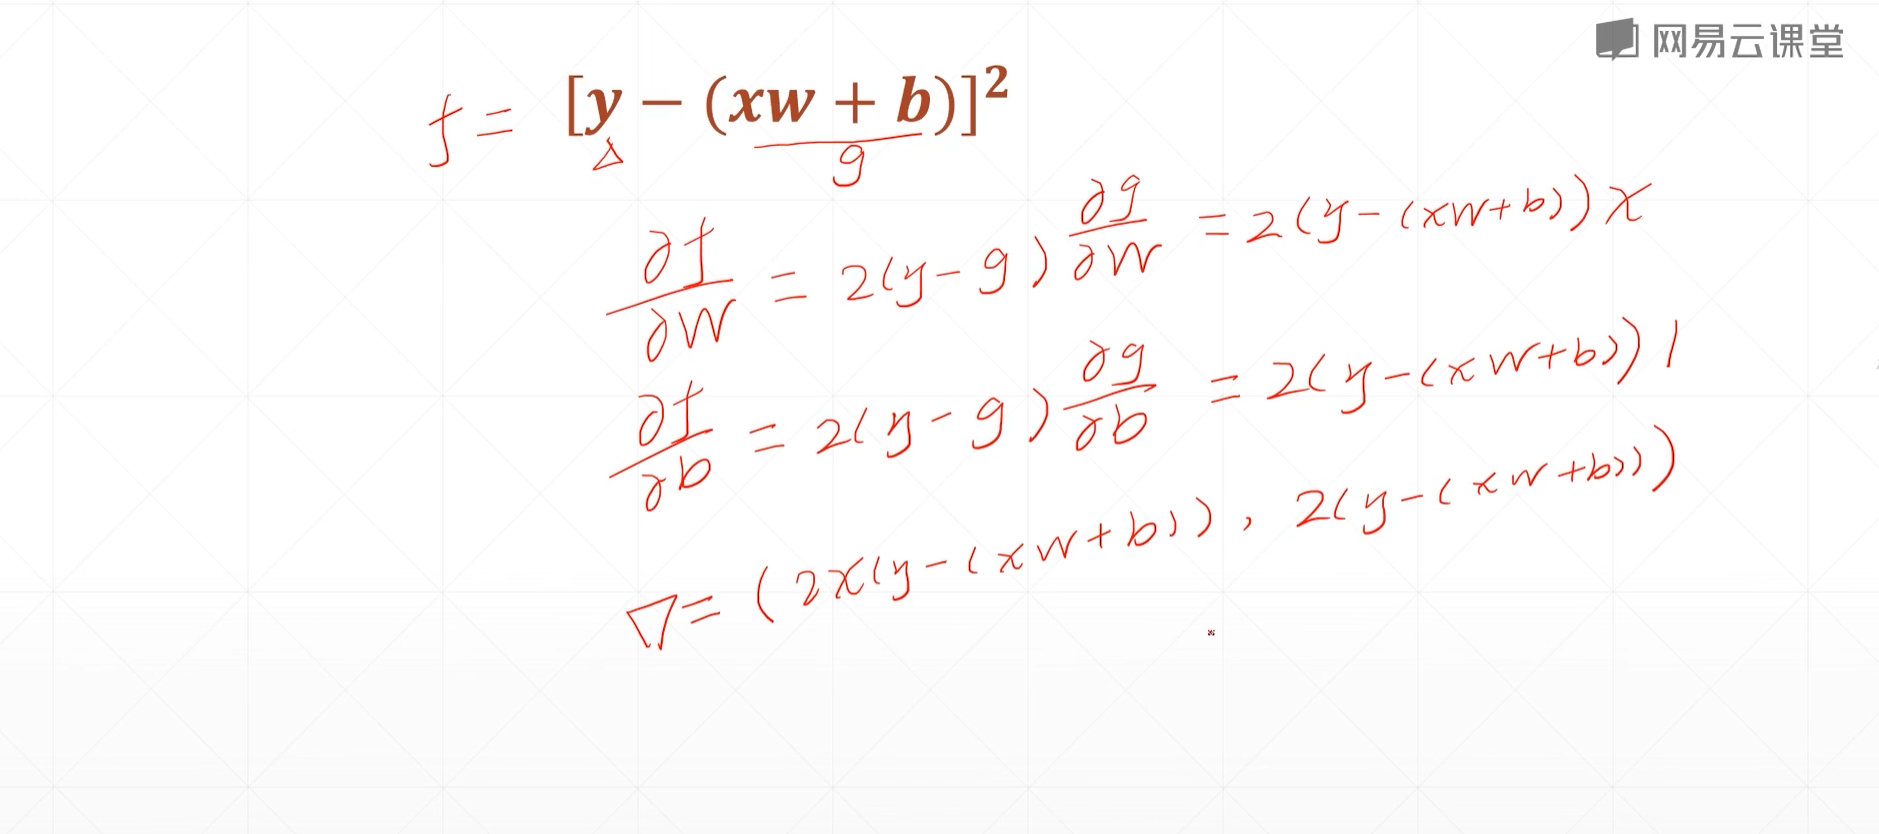 网易云课堂
f = [y − (xw + b)]²
Δ g
∂f/∂w = 2(y-g) ∂g/∂w = 2(y-(xw+b))x
∂f/∂b = 2(y-g) ∂g/∂b = 2(y-(xw+b))1
∇= (2x(y-(xw+b)), 2(y-(xw+b)))